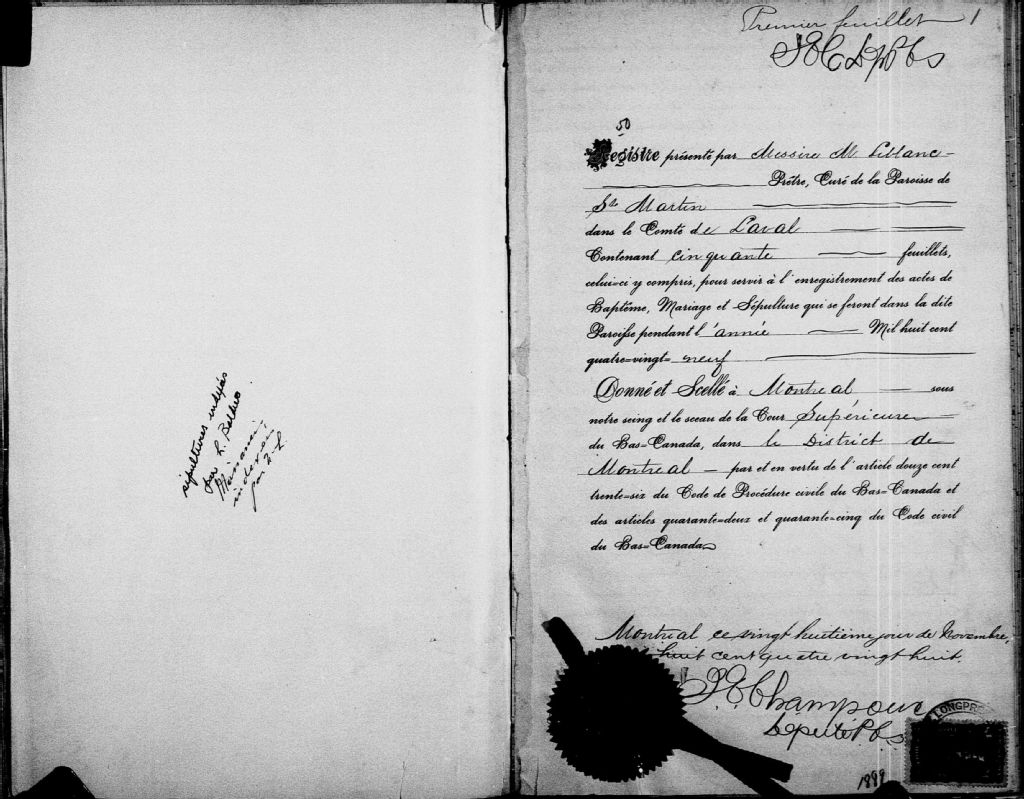 sépultures indexées
par L. Belleau
Mariages
index
par
Premier feuillet 1
J E C Dép P C S
50
Registre présenté par Messire M. Leblanc
Prêtre, Curé de la Paroisse de
St. Martin
dans le Comté de Laval
Contenant cinquante feuillets,
celui-ci y compris, pour servir à l'enregistrement des actes de
Baptême, Mariage et Sépulture qui se feront dans la dite
Paroisse pendant l'année Mil huit cent
quatre=vingt= neuf
Donné et Scellé à Montreal sous
notre seing et le sceau de la Cour Supérieure
du Bas=Canada, dans le District de
Montreal par et en vertu de l'article douze cent
trente=six du Code de Procédure civile du Bas=Canada et
des articles quarante=deux et quarante=cinq du Code civil
du Bas=Canada
Montréal ce vingt huitième jour de Novembre,
huit cent quatre vingt huit.
J E Champoux
Député P.C.S
LONGPR
1889